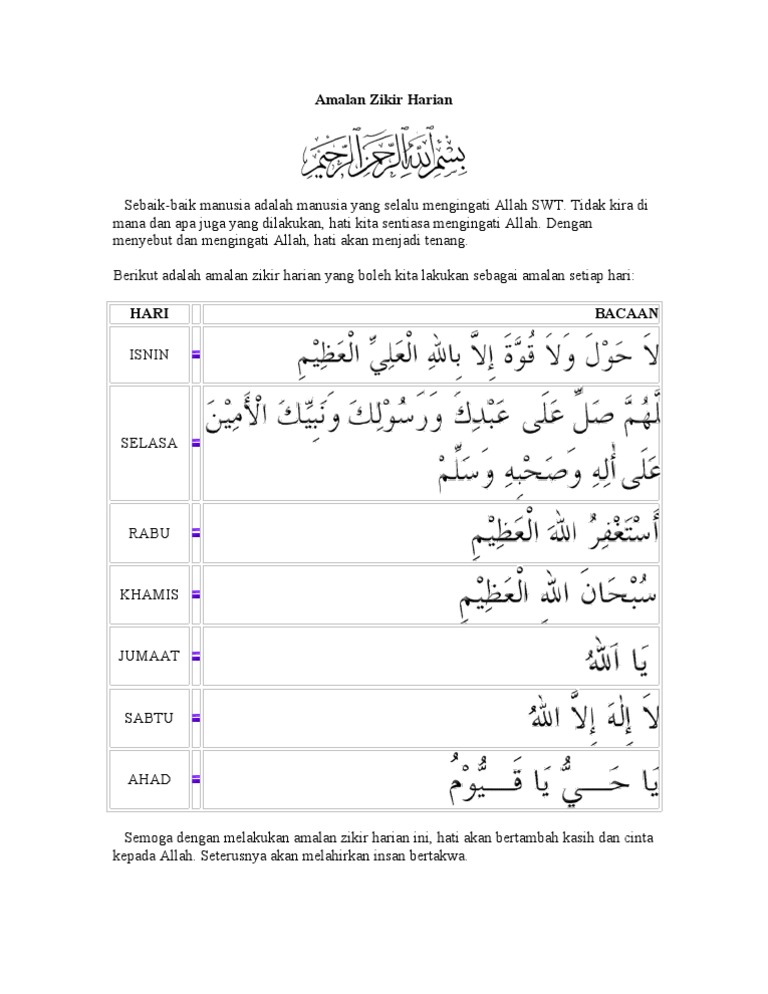 Amalan Zikir Harian
بِسْمِ اللَّهِ الرَّحْمَٰنِ الرَّحِيمِ
Sebaik-baik manusia adalah manusia yang selalu mengingati Allah SWT. Tidak kira di
mana dan apa juga yang dilakukan, hati kita sentiasa mengingati Allah. Dengan
menyebut dan mengingati Allah, hati akan menjadi tenang.
Berikut adalah amalan zikir harian yang boleh kita lakukan sebagai amalan setiap hari:
HARI BACAAN
ISNIN = لاَ حَوْلَ وَلاَ قُوَّةَ إِلاَّ بِاللهِ الْعَلِيِّ الْعَظِيْمِ
SELASA = لَّهُمَّ صَلِّ عَلَى عَبْدِكَ وَرَسُوْلِكَ وَنَبِيِّكَ الْأَمِيْنَ
عَلَى أٰلِهِ وَصَحْبِهِ وَسَلِّمْ
RABU = أَسْتَغْفِرُ اللهَ الْعَظِيْمِ
KHAMIS = سُبْحَانَ اللهِ الْعَظِيْمِ
JUMAAT = يَا اَللهُ
SABTU = لاَ إِلٰهَ إِلاَّ اللهُ
AHAD = يَا حَـــيُّ يَا قَـــيُّوْمُ
Semoga dengan melakukan amalan zikir harian ini, hati akan bertambah kasih dan cinta
kepada Allah. Seterusnya akan melahirkan insan bertakwa.